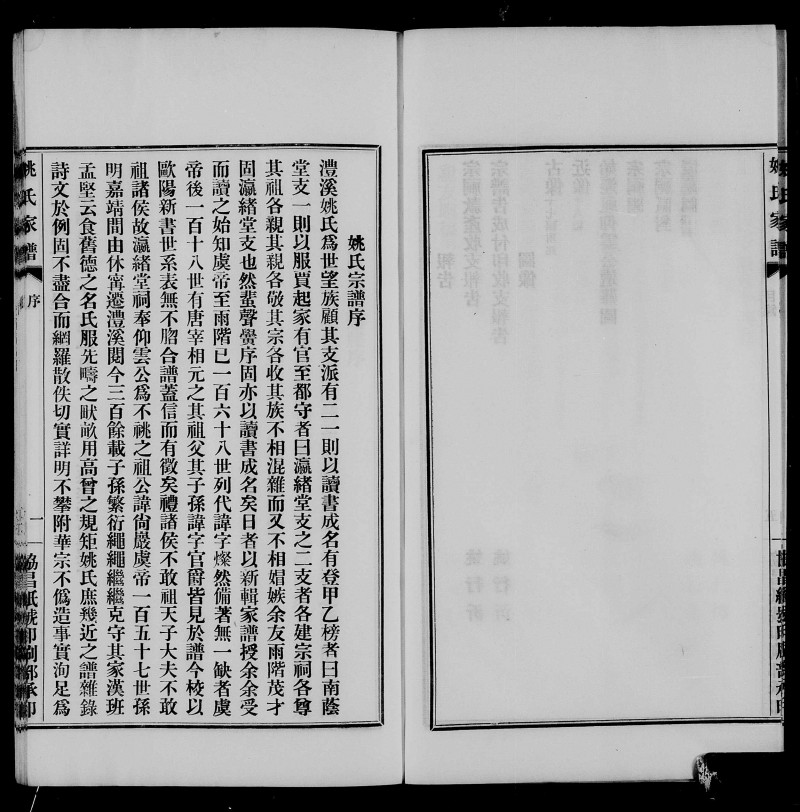 姚氏家譜
姚氏宗譜序
澧溪姚氏爲世望族顧其支派有二一則以讀書成名有登甲乙榜者曰南蔭
堂支一則以服賈起家有官至都守者曰瀛緒堂支之二支者各建宗祠各尊
其祖各親其親各敬其宗各收其族不相混雜而又不相娼嫉余友雨階茂才
固瀛緒堂支也然蜚聲黌序固亦以讀書成名矣日者以新輯家譜授余余受
而讀之始知虞帝至雨階已一百六十八世列代諱字燦然備著無一缺者虞
帝後一百十八世有唐宰相元之其祖父其子孫諱字官爵皆見於譜今校以
歐陽新書世系表無不脗合譜蓋信而有徵矣禮諸侯不敢祖天子大夫不敢
祖諸侯故瀛緒堂祠奉仰雲公爲不祧之祖公諱尙嚴虞帝一百五十七世孫
明嘉靖間由休寗遷澧溪閱今三百餘載子孫繁衍繩繩繼繼克守其家漢班
孟堅云食舊德之名氏服先疇之畎畝用高曾之規矩姚氏庶幾近之譜雜錄
詩文於例固不盡合而網羅散佚切實詳明不攀附華宗不僞造事實洵足爲
姚氏家譜
序
一
協昌紙號印刷部承印